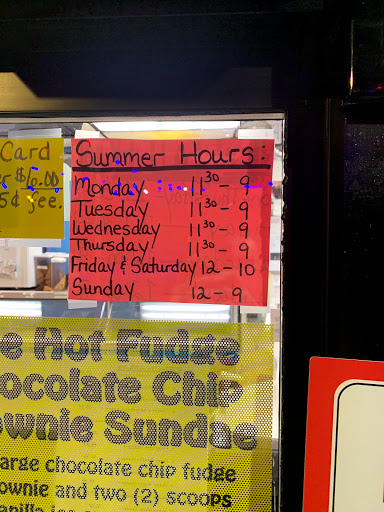 Card
$6.00
5¢ fee.
Summer Hours:
Monday 11 30 - 9
Tuesday 11 30 - 9
Wednesday 11 30 - 9
Thursday 11 30 - 9
Friday & Saturday 12 - 10
Sunday 12 - 9
e Hot Fudge
ocolate Chip
ownie Sundae
arge chocolate chip fudge
ownie and two (2) scoops